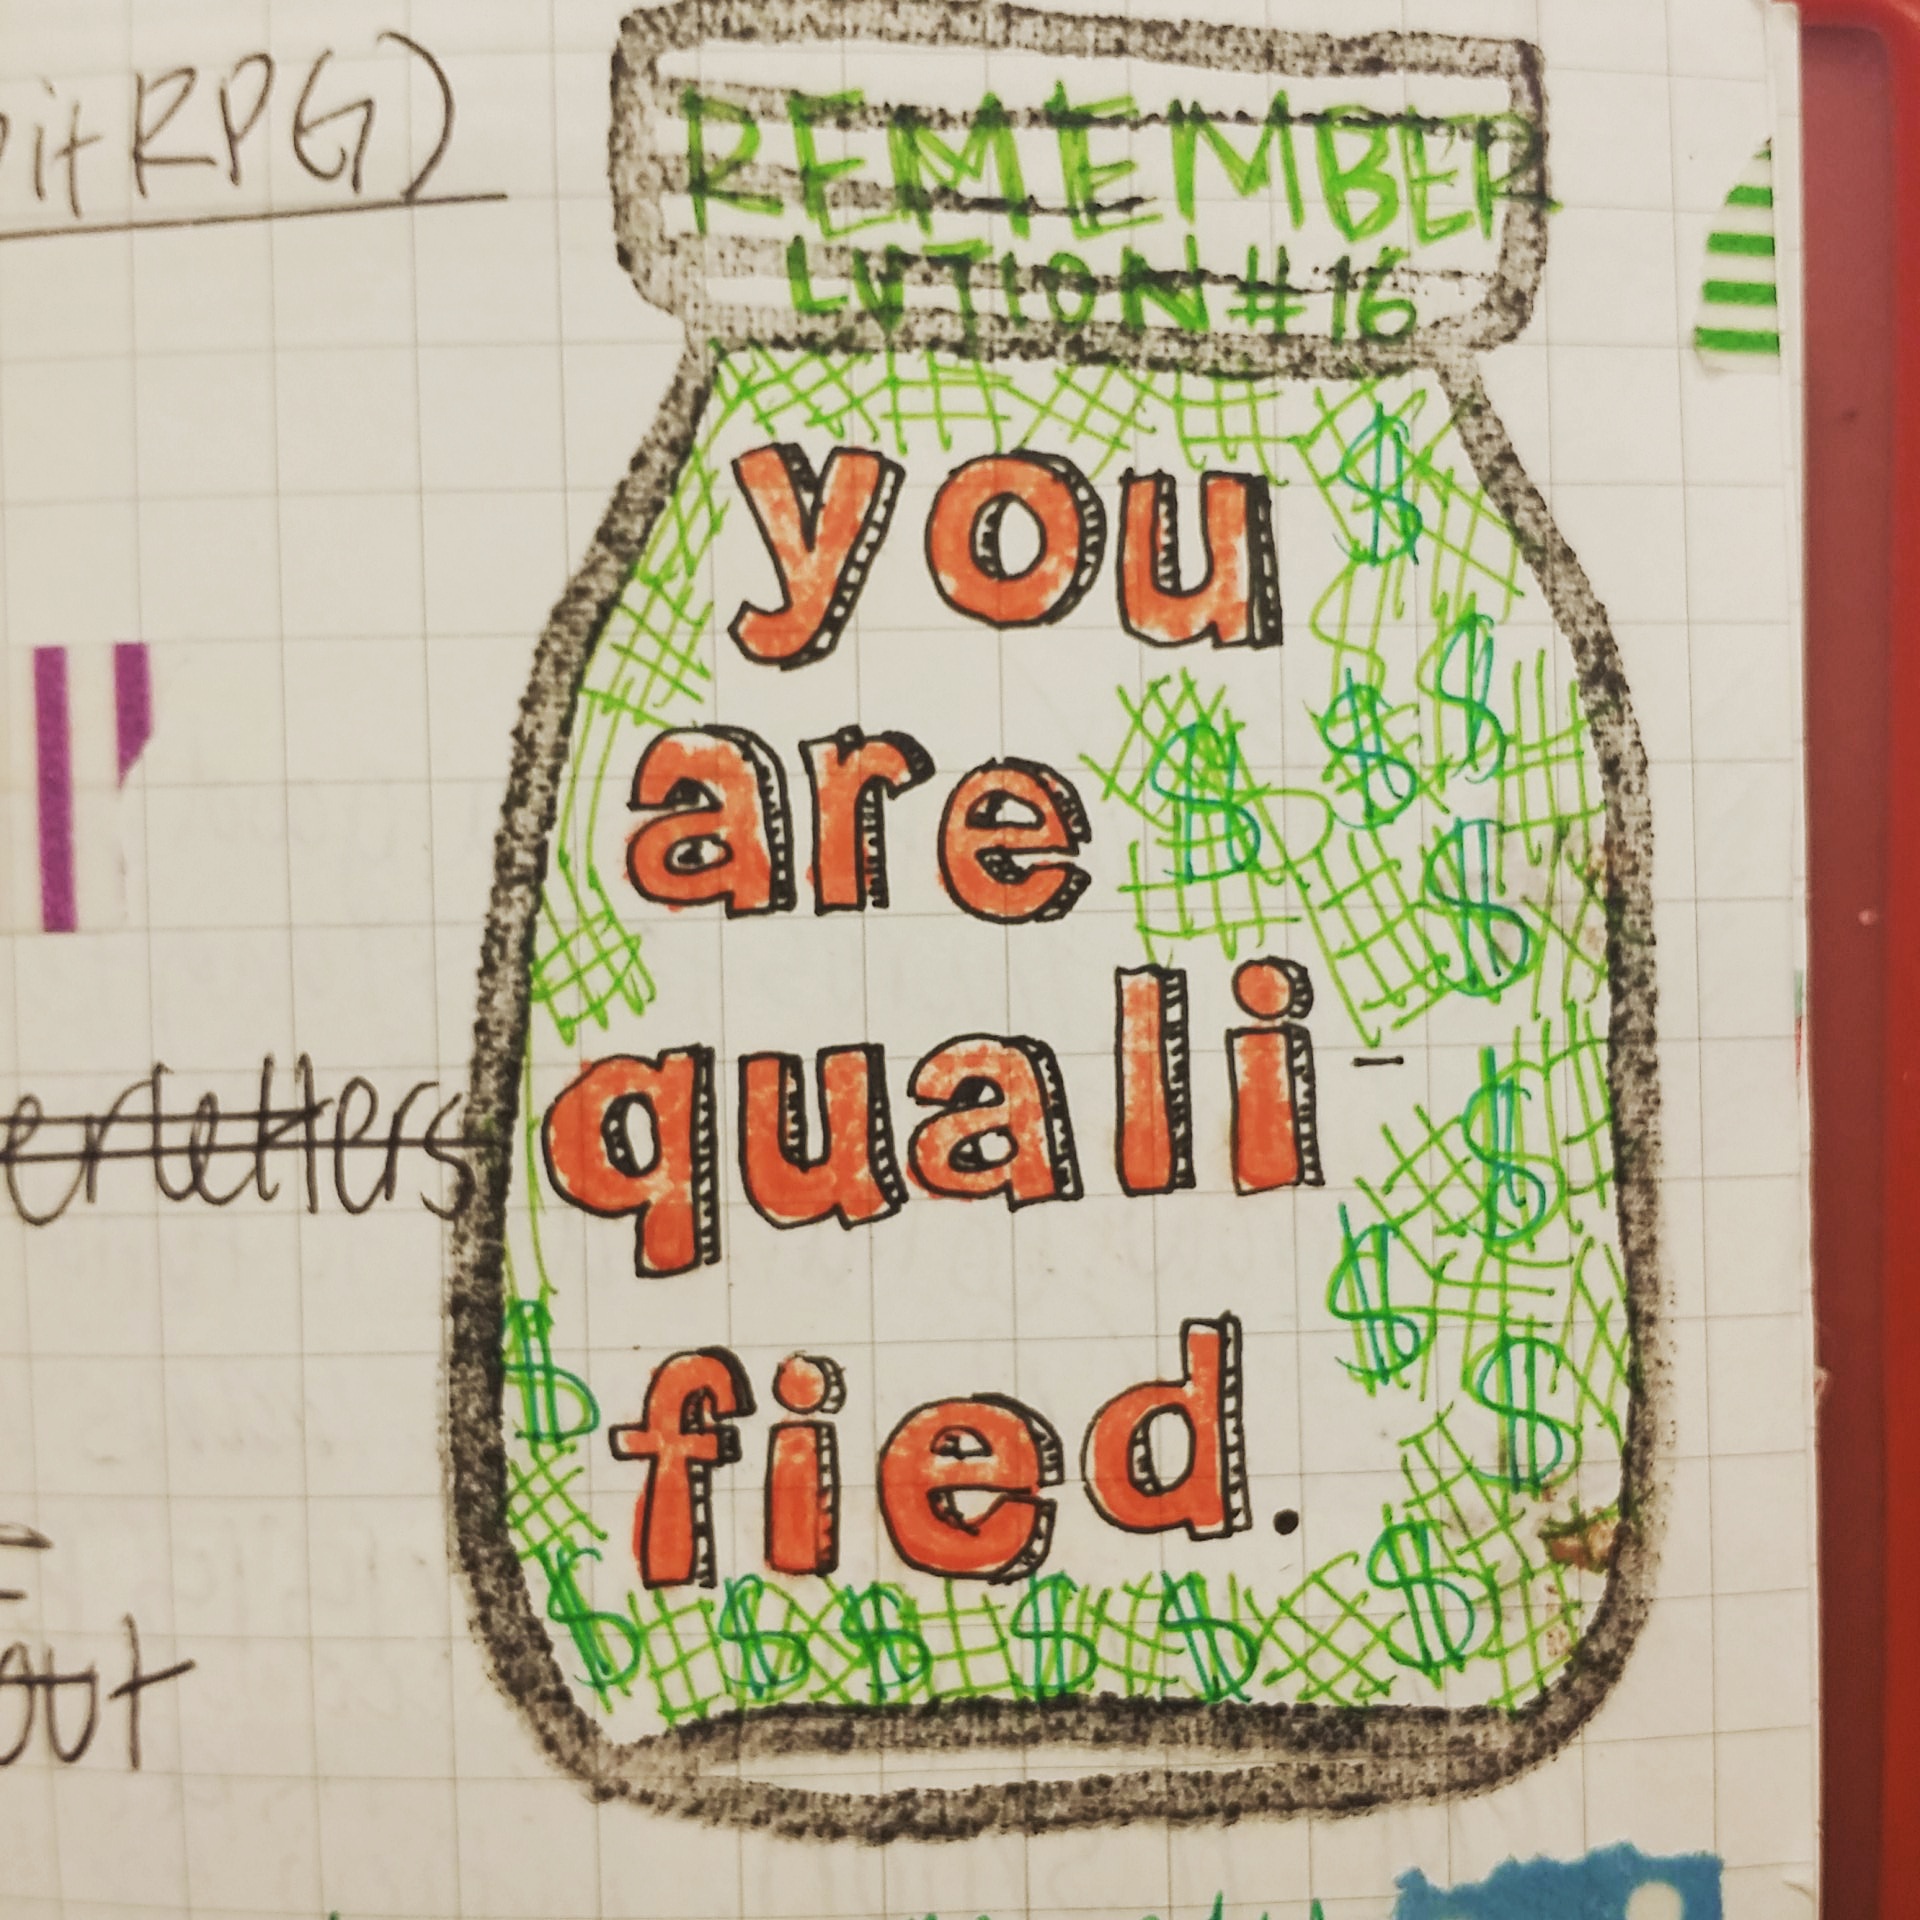 RPG)
REMEMBER
LUTION #16
you
are
quali-
fied.
$ $ $ $ $ $ $ $ $ $ $ $ $ $ $
out